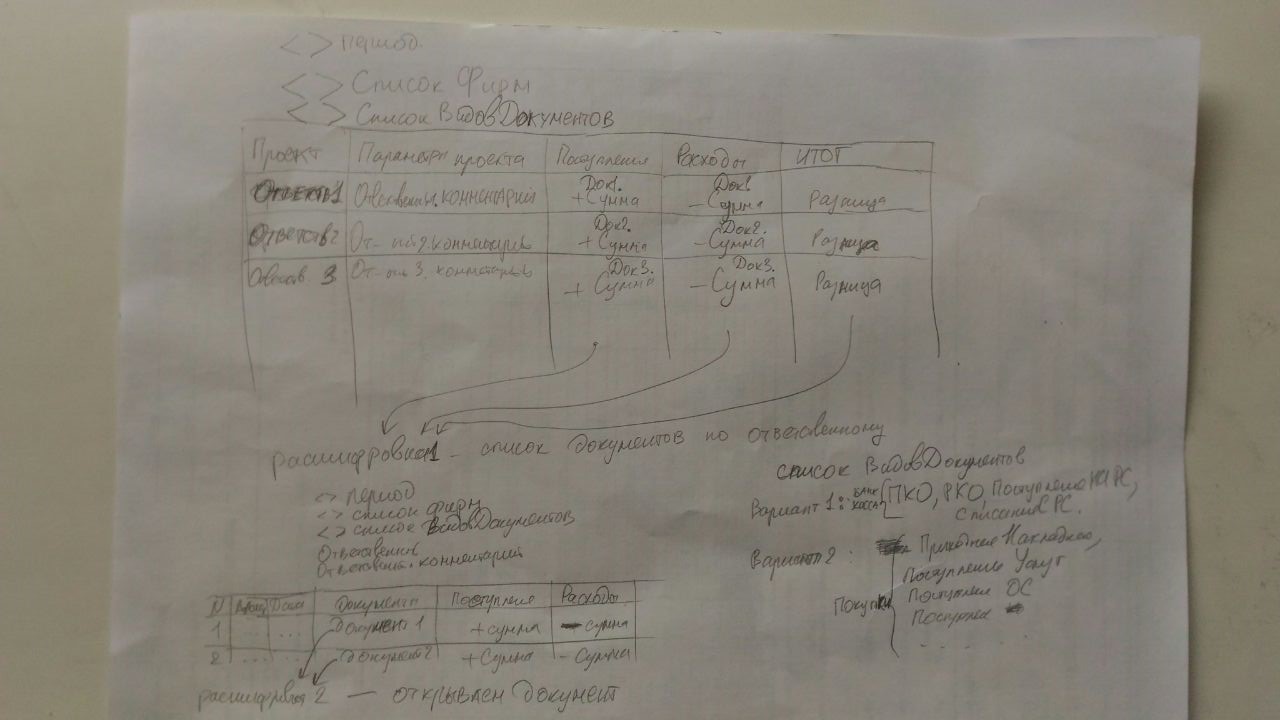 <> период.
<> Список Фирм
<> Список ВидовДокументов
Проект Параметры проекта Поступления Расходы ИТОГ
Ответств1 Ответственный.комментарий Док1. + Сумма Док1 – Сумма Разница
Ответств2 комментарий Док2. + Сумма Док2. – Сумма Разница
3 3. комментарий Док3. + Сумма Док3. – Сумма Разница
расшифровка1 – список документов по ответственному
<> период
<> список фирм
<> список ВидовДокументов
Ответственный
Ответствен.комментарий
N Дата Документы Поступления Расходы
1 ... ... Документ 1 + сумма – сумма
2 ... ... Документ2 + Сумма – Сумма
расшифровка 2 — открываем документ
список ВидовДокументов
Вариант 1: Банк Касса ПКО, РКО, Поступление на РС,
Списание с РС.
Вариант 2: Приходная Накладная,
Поступление Услуг
Покупки Поступление ОС
Поступление
. . . . .